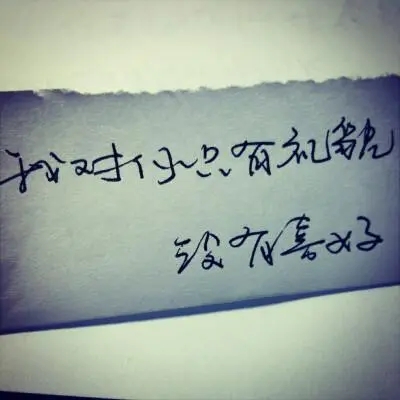 我对你只有礼貌
没有喜好